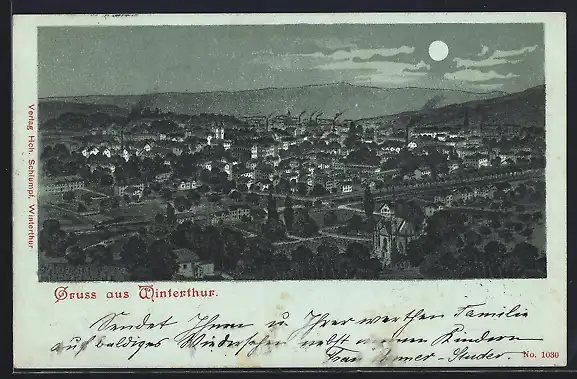 Verlag Hch. Schlumpf, Winterthur
Gruss aus Winterthur.
Sendet Ihnen u Ihrer werthen Familie
auf baldiges Wiedersehen nebst Kindern
Frau Studer.
No. 1030